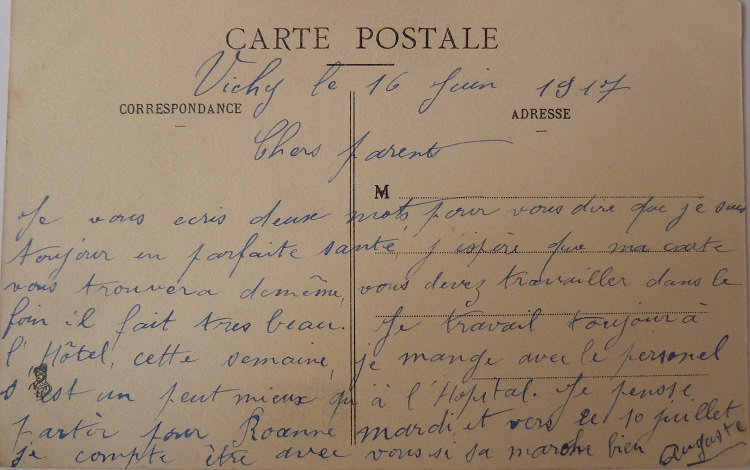 CARTE POSTALE
Vichy le 16 Juin 1917
CORRESPONDANCE
ADRESSE
Chers parents
M
Je vous ecris deux mots pour vous dire que je suis
toujour en parfaite santé, j'espère que ma carte
vous trouvera demême, vous devez travailler dans le
foin il fait tres beau. Je travail toujour à
l'Hôtel, cette semaine, je mange avec le personel
s'est un peut mieux qu'à l'Hopital. Je pense
partir pour Roanne mardi et vers le 10 juillet
je compte être avec vous si sa marche bien Auguste